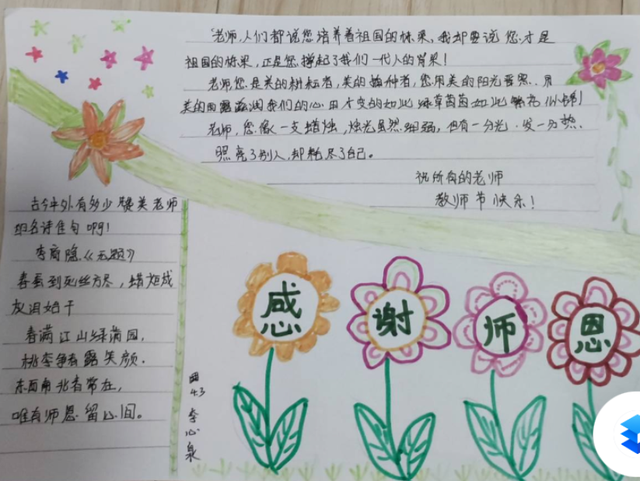 老师,人们都说您培养着祖国的栋梁,我却要说,您才是
祖国的栋梁,正是您撑起了我们一代人的脊梁!
老师您是美的耕耘者,美的播种者,您用美的阳光普照,用
美的雨露滋润我们的心田才变的如此绿草茵茵如此繁花似锦!
老师,您像一支蜡烛,烛光虽然细弱,也有一分光,发一分热、
照亮了别人,却耗尽了自己。
祝所有的老师
教师节快乐!
古今中外有多少赞美老师
的名诗佳句啊!
李商隐《无题》
春蚕到死丝方尽,蜡炬成
灰泪始干
春满江山绿满园,
桃李争春露笑颜.
东西南北春常在,
唯有师恩留心间。
感谢师恩
四3 李心泉